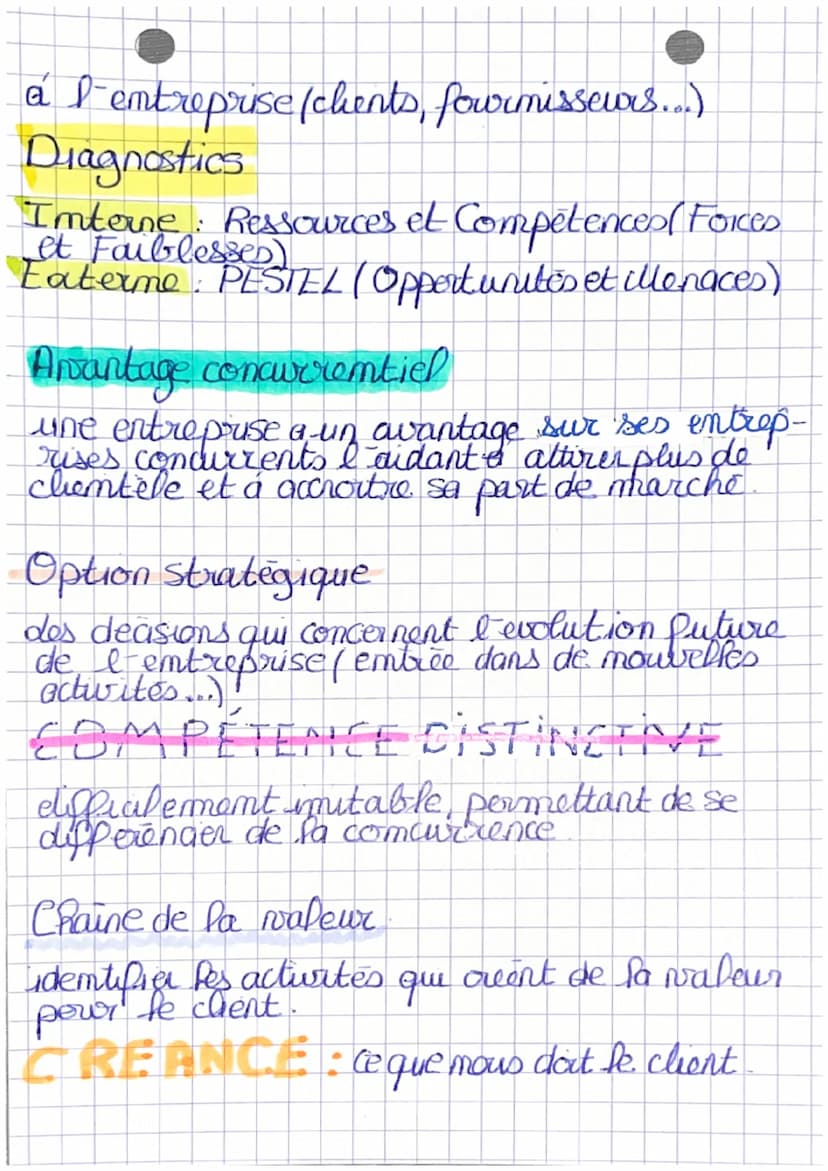 à l'entreprise (clients, fournisseurs...)
Diagnostics
Interne : Ressources et Compétences (Forces
et Faiblesses)
Externe : PESTEL (Opportunités et Menaces)
Avantage concurrentiel
une entreprise a un avantage sur ses entrep-
rises concurrents l'aidant à attirer plus de
clientèle et à accroître sa part de marché.
Option stratégique
des decisions qui concernent l'evolution future
de l'entreprise (entrée dans de nouvelles
activités...)
COMPÉTENCE DISTINCTIVE
difficilement imitable, permettant de se
différencier de la concurrence
Chaine de la valeur
identifier les activités qui créent de la valeur
pour le client.
CREANCE : ce que nous doit le client.